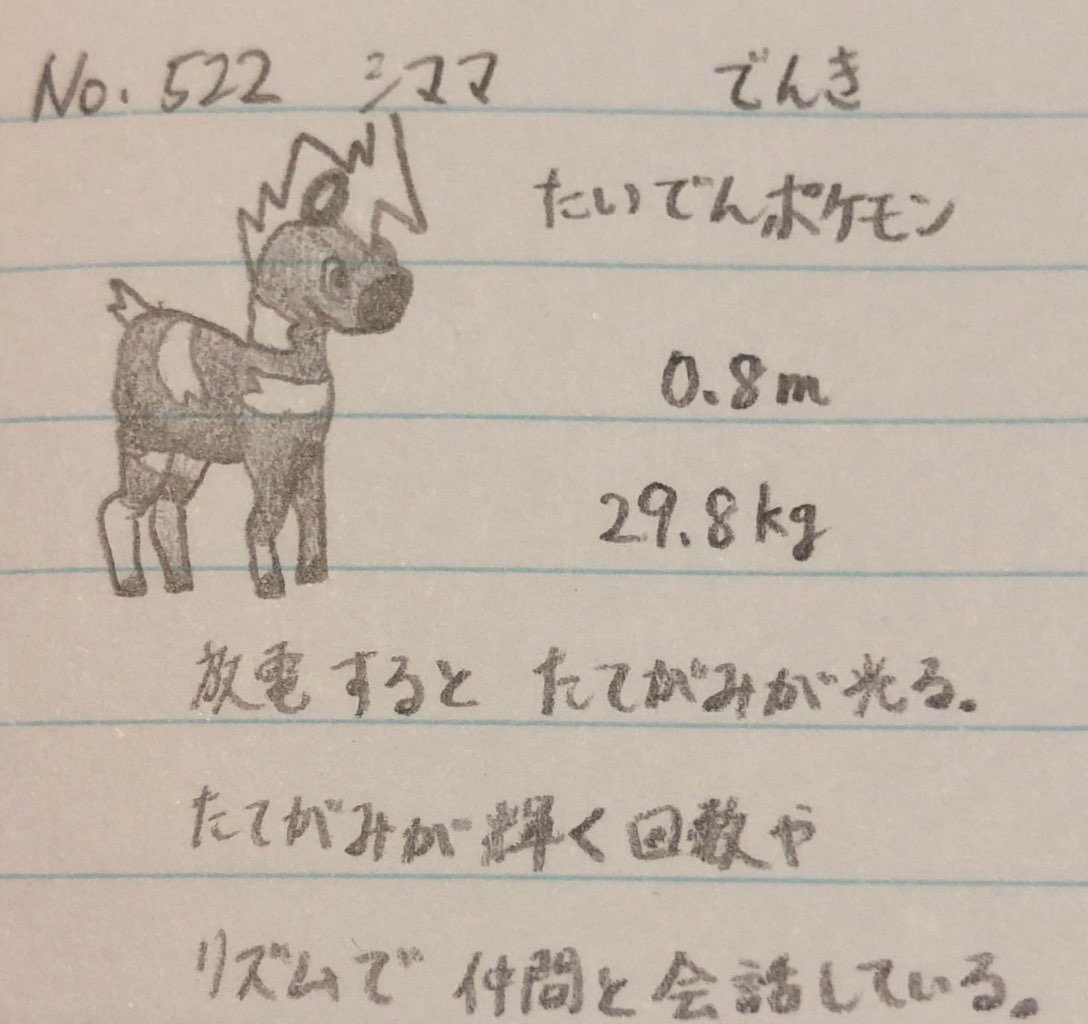 No. 522 シママ でんき
たいでんポケモン
0.8m
29.8kg
放電すると たてがみが光る。
たてがみが輝く回数や
リズムで 仲間と会話している。